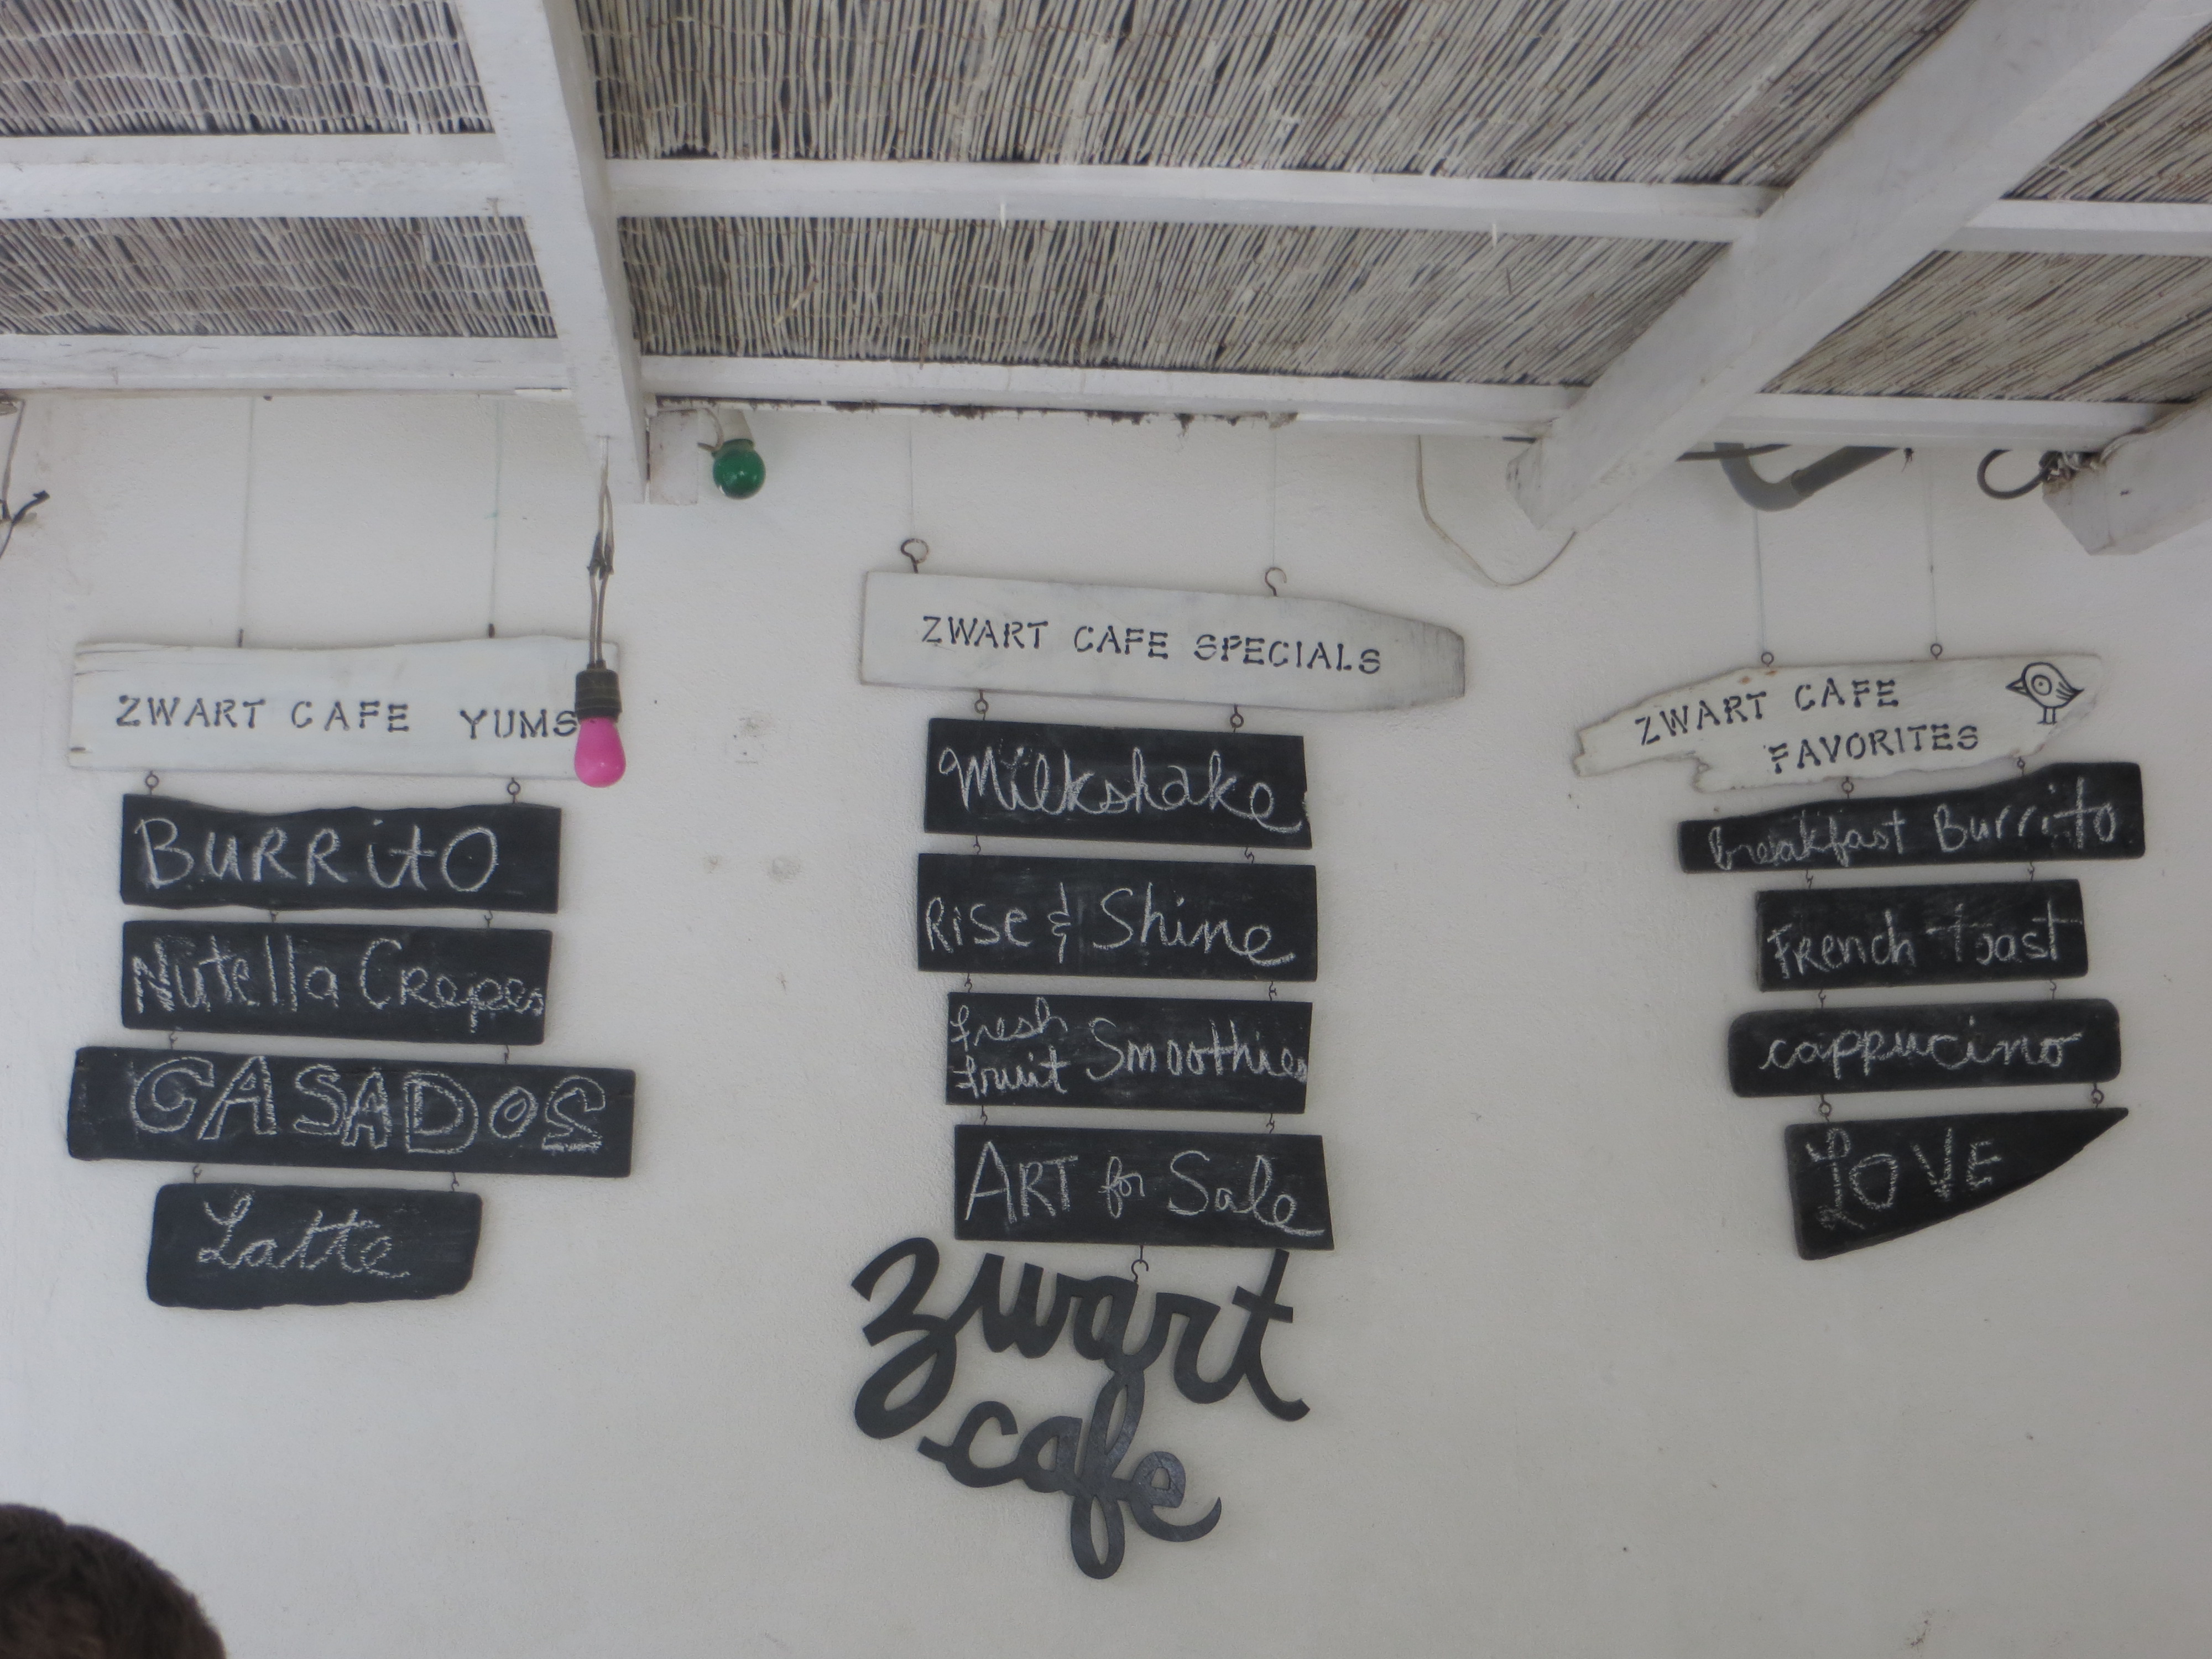 ZWART CAFE YUMS
BURRitO
Nutella Crepes
CASADOS
Latte
ZWART CAFE SPECIALS
Milkshake
RiSe & Shine
fresh
fruit Smoothies
ART for Sale
zwart
cafe
ZWART CAFE
FAVORITES
breakfast Burrito
French toast
cappucino
LOVE